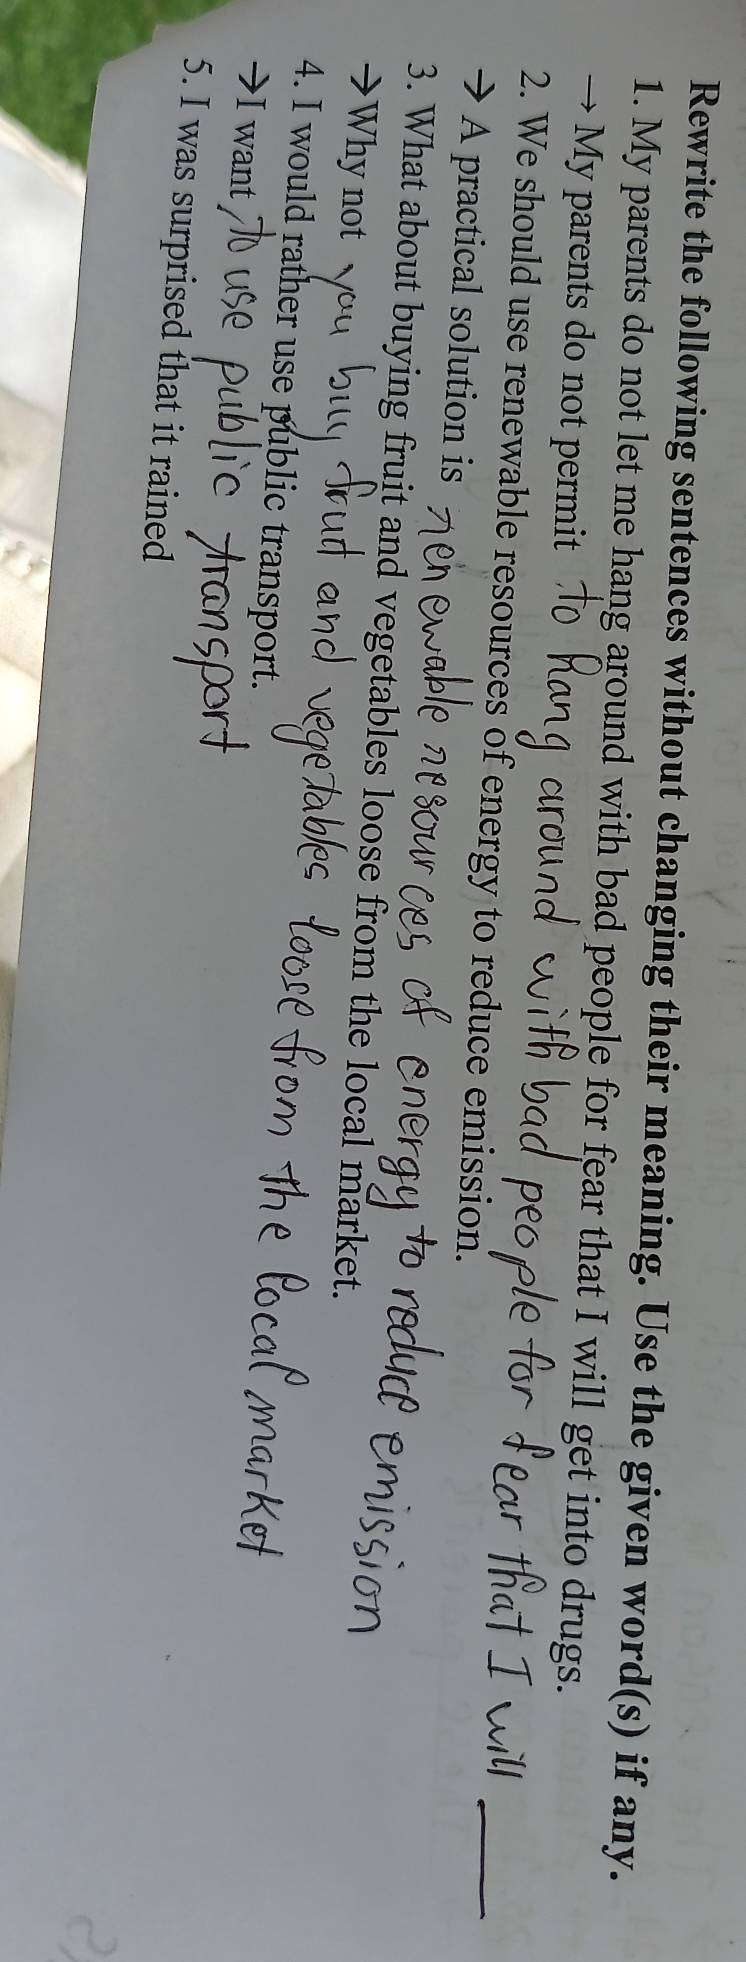 Rewrite the following sentences without changing their meaning. Use the given word(s) if any.
1. My parents do not let me hang around with bad people for fear that I will get into drugs.
→ My parents do not permit to hang around with bad people for fear that I will
2. We should use renewable resources of energy to reduce emission.
→ A practical solution is renewable resources of energy to reduce emission
3. What about buying fruit and vegetables loose from the local market.
→ Why not you buy fruit and vegetables loose from the local market
4. I would rather use public transport.
→ I want, to use public transport
5. I was surprised that it rained